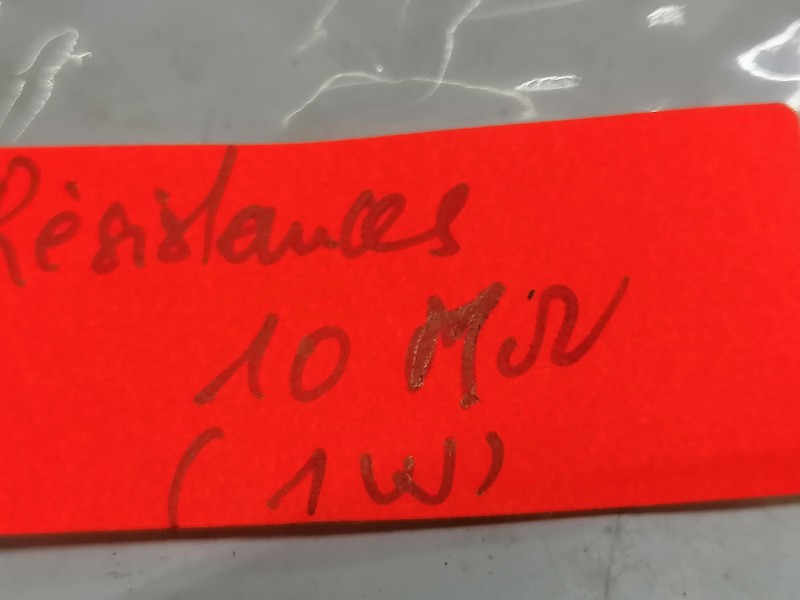 Résistances
10 MΩ
(1W)